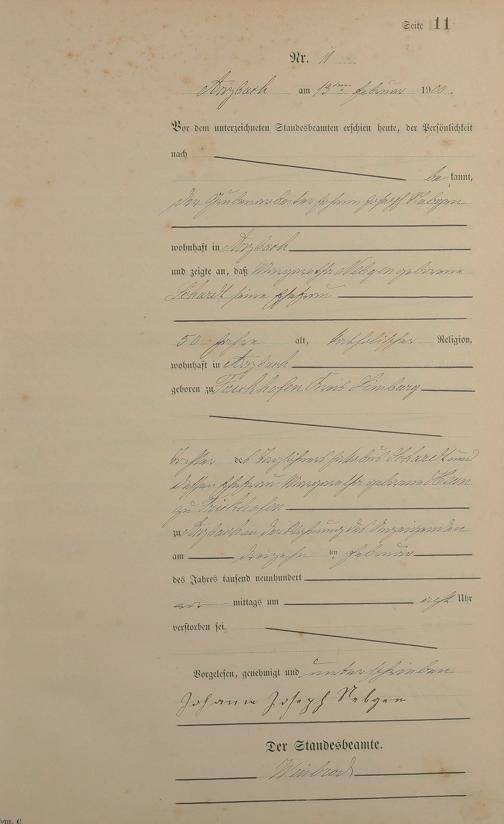 Seite 11
Nr. 11
Arzbach am 13ten Februar 1900.
Vor dem unterzeichneten Standesbeamten erschien heute, der Persönlichkeit
nach
be kannt,
der Grubenarbeiter Johann Joseph Nebgen
wohnhaft in Arzbach
und zeigte an, daß Margaretha Nebgen geborene
Schardt seine Ehefrau
50 Jahre alt, katholischer Religion,
wohnhaft in Arzbach
geboren zu Frickhofen Kreis Limburg
Tochter des Taglöhners Schardt und
dessen Ehefrau Margaretha geborene
zu Frickhofen
zu Arzbach in der Wohnung des Anzeigenden
am dreizehn ten Februar
des Jahres tausend neunhundert
vor mittags um acht Uhr
verstorben sei.
Vorgelesen, genehmigt und unterschrieben
Johann Joseph Nebgen
Der Standesbeamte.